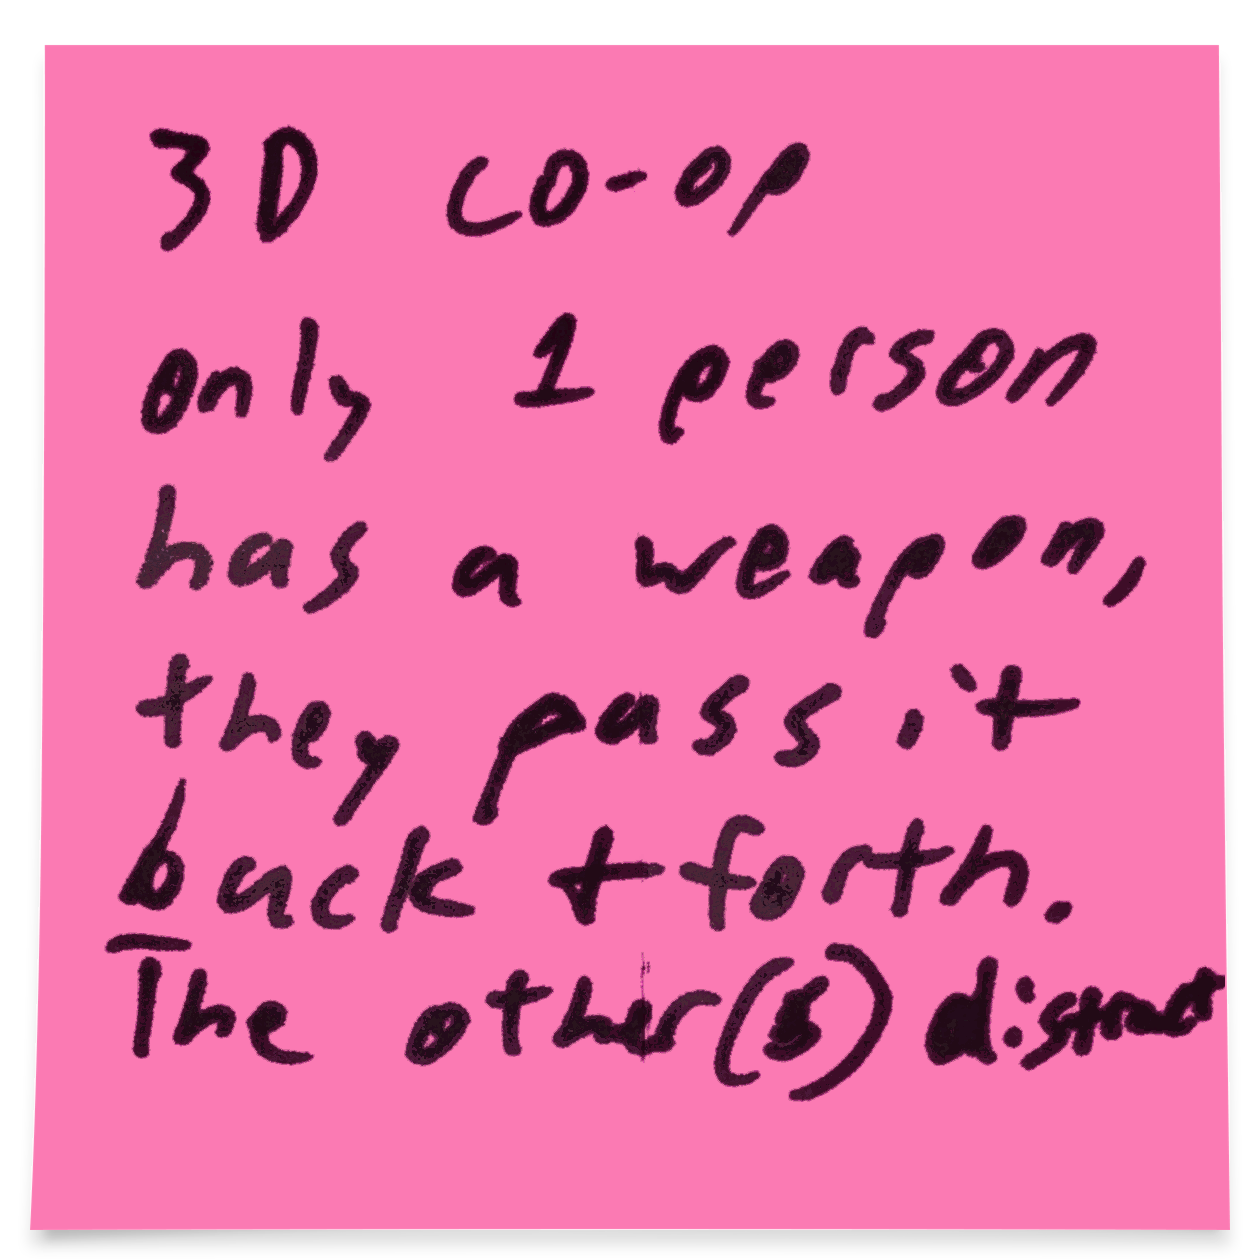 3D co-op
only 1 person
has a weapon,
they pass it
back + forth.
The other(s) distract